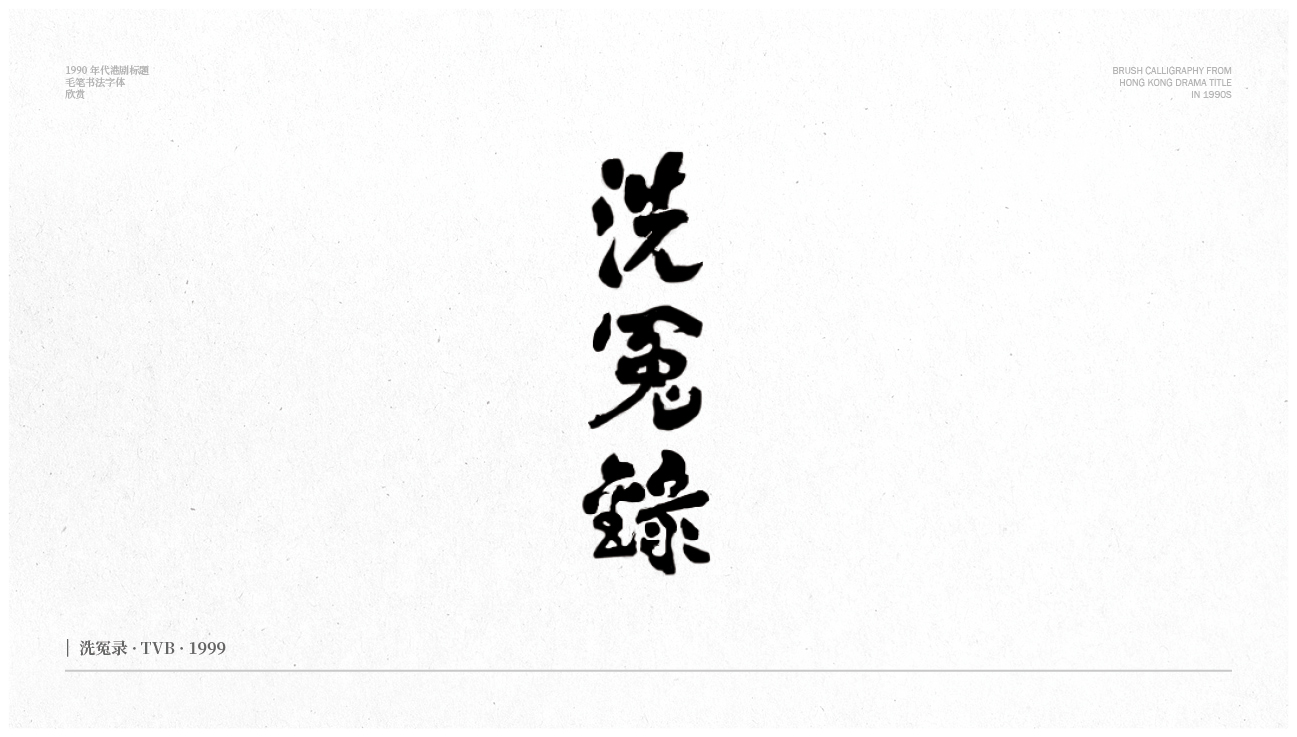 1990 年代港剧标题
毛笔书法字体
欣赏
BRUSH CALLIGRAPHY FROM
HONG KONG DRAMA TITLE
IN 1990S
洗
冤
錄
洗冤录 · TVB · 1999